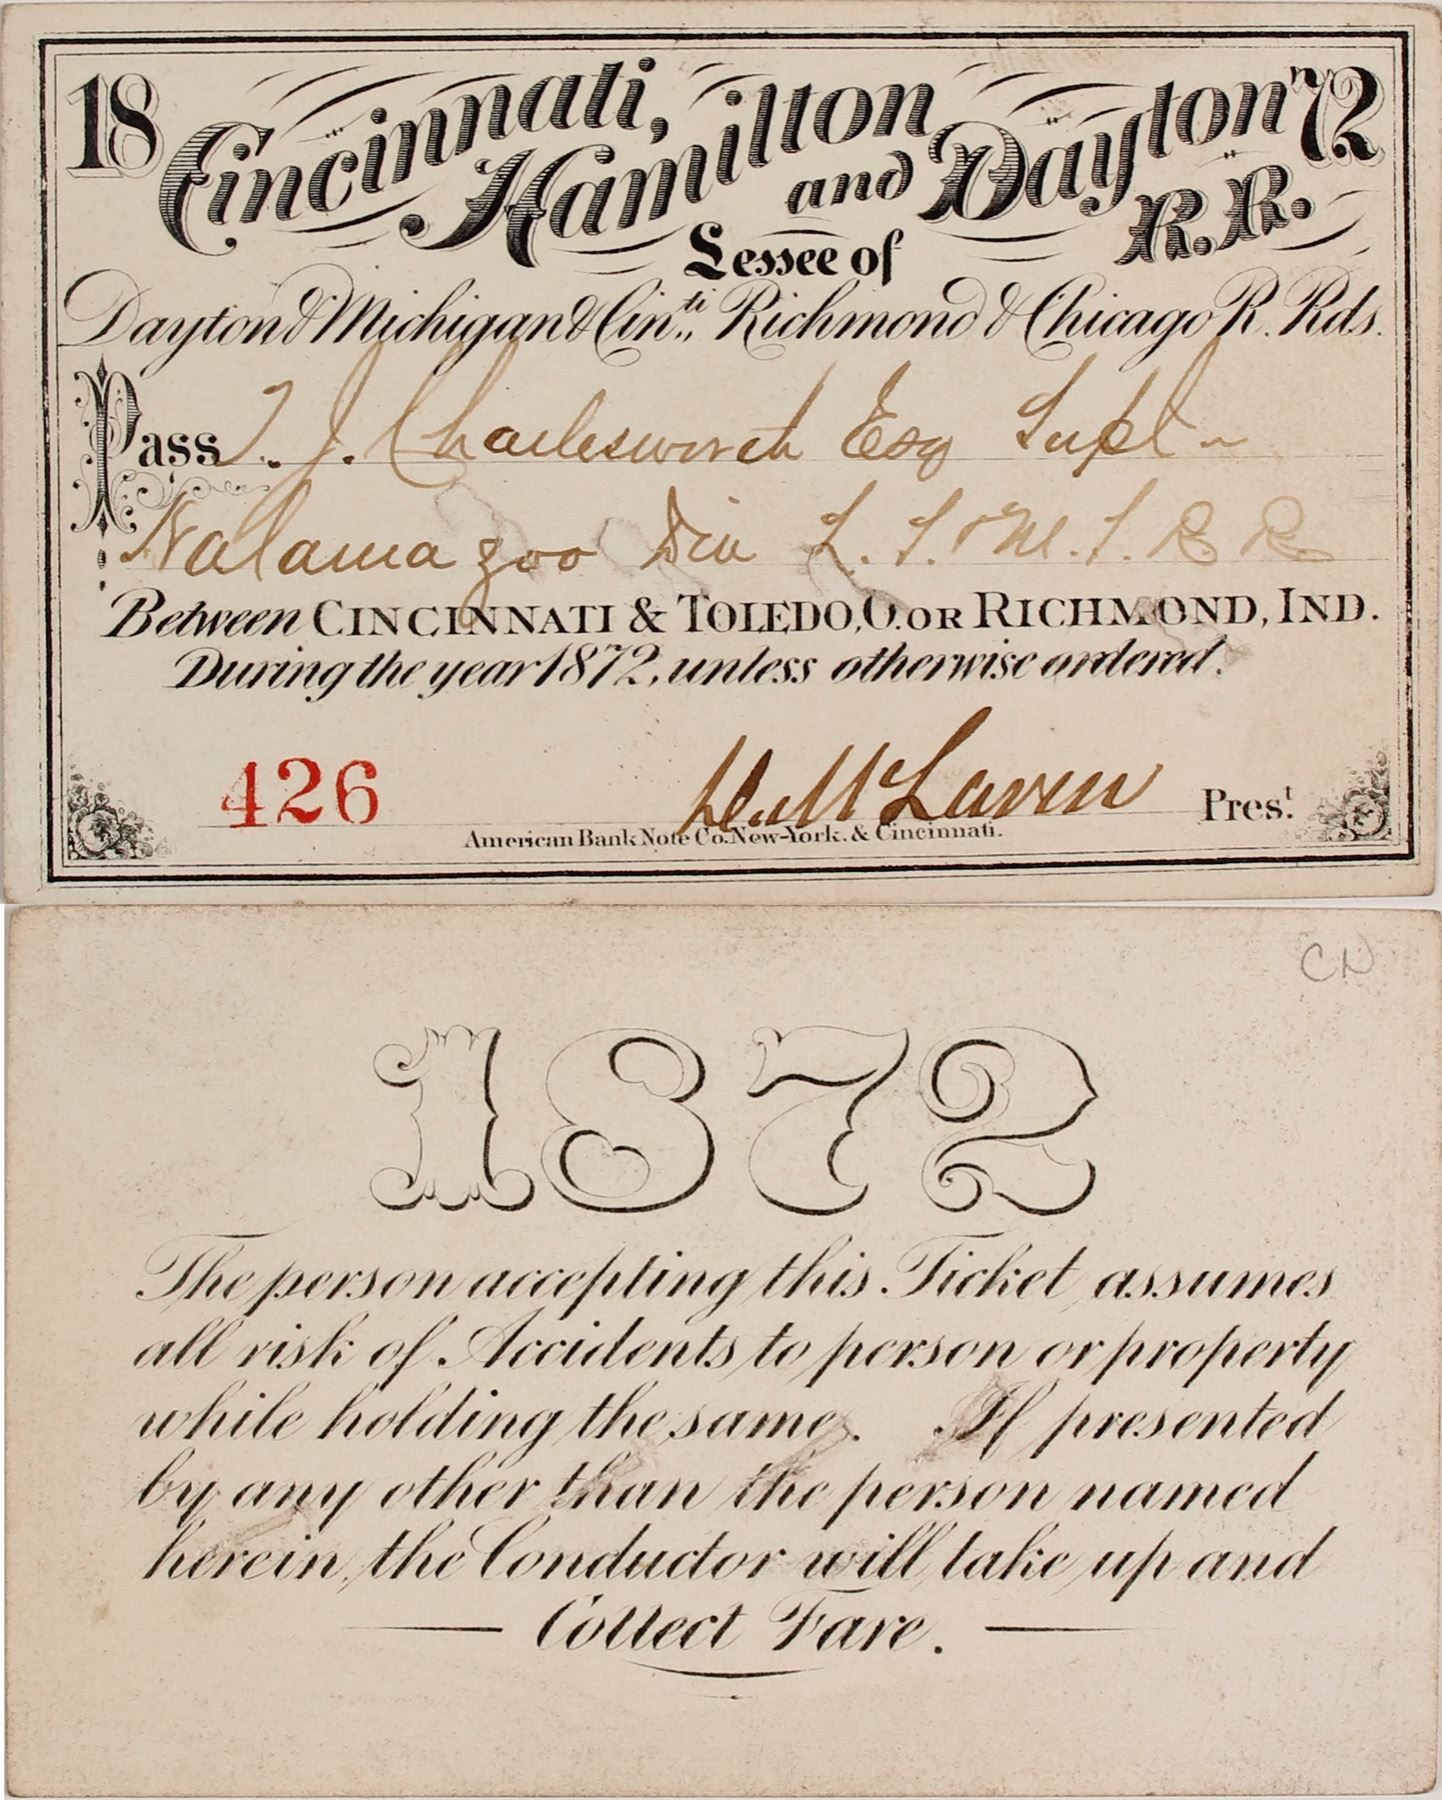 18 Cincinnati, Hamilton and Dayton R.R. 72
Lessee of
Dayton & Michigan & Cin.ti Richmond & Chicago R. Rds.
Pass T. J. Charlesworth Esq Supt
Kalamazoo Div L. S. & M. S. R R
Between CINCINNATI & TOLEDO, O. OR RICHMOND, IND.
During the year 1872, unless otherwise ordered.
426
D. McLaren Pres.t
American Bank Note Co. New-York. & Cincinnati.
CN
1872
The person accepting this Ticket assumes
all risk of Accidents to person or property
while holding the same. If presented
by any other than the person named
herein, the Conductor will take up and
Collect Fare.